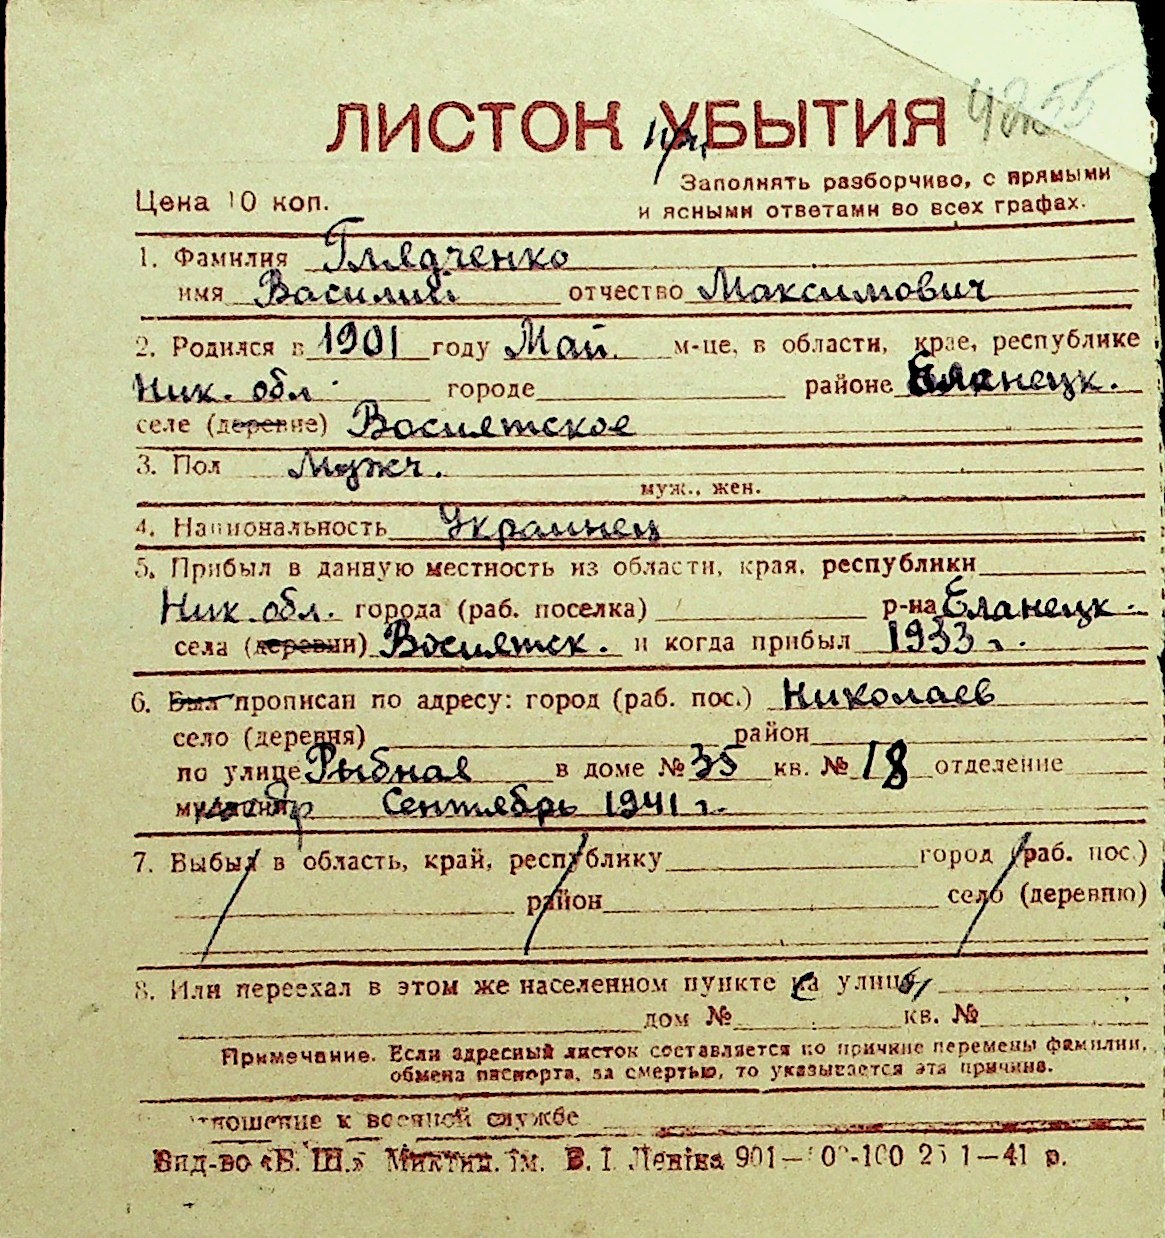 4255
ЛИСТОК УБЫТИЯ
Цена 10 коп.
Заполнять разборчиво, с прямыми
и ясными ответами во всех графах.
1. Фамилия Глядченко
имя Василий отчество Максимович
2. Родился в 1901 году Май. м-це, в области, крае, республике
Ник. обл. городе районе Еланецк.
селе (деревне) Восиятское
3. Пол Мужч.
муж., жен.
4. Национальность Украинец
5. Прибыл в данную местность из области, края, республики
Ник. обл. города (раб. поселка) р-на Еланецк.
села (деревни) Восиятск. и когда прибыл 1933 г.
6. Был прописан по адресу: город (раб. пос.) Николаев
село (деревня) район
по улице Рыбная в доме № 35 кв. № 18 отделение
милиции Сентябрь 1941 г.
7. Выбыл в область, край, республику город (раб. пос.)
район село (деревню)
8. Или переехал в этом же населенном пункте на улицу
дом № кв. №
Примечание. Если адресный листок составляется по причине перемены фамилии,
обмена паспорта, за смертью, то указывается эта причина.
отношение к военной службе
Вид-во «Б. Ш.» Миктип. ім. В. І. Леніна 901— 1—41 р.